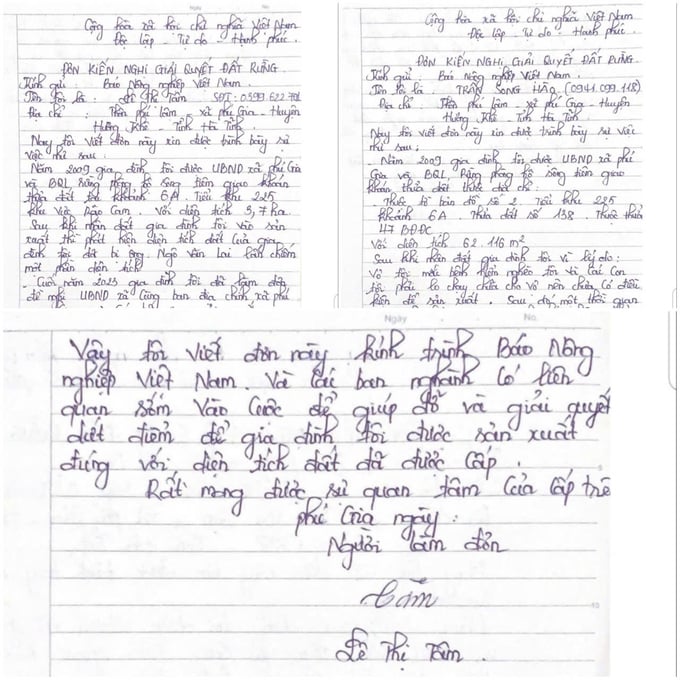 Cộng hòa xã hội chủ nghĩa Việt Nam
Độc lập - Tự do - Hạnh phúc.
ĐƠN KIẾN NGHỊ GIẢI QUYẾT ĐẤT RỪNG
Kính gửi : Báo Nông nghiệp Việt Nam.
Tên tôi là : Lê Thị Tâm SĐT: 0399.622
Địa chỉ : Thôn phú lâm - xã phú Gia - Huyện
Hương Khê - Tỉnh Hà Tĩnh.
Nay tôi viết đơn này xin được trình bày sự
việc như sau :
Năm 2009 gia đình tôi được UBND xã phú Gia
và BQL rừng phòng hộ sông tiêm giao khoán
thửa đất tại khoảnh 6A. Tiểu khu 225
khu vực Với diện tích 3,7 ha.
Sau khi nhận đất gia đình tôi vào sản
xuất thì phát hiện diện tích đất của gia
đình tôi đã bị ông Ngô Văn Lai lấn chiếm
một phần diện tích
- Cuối năm 2023 gia đình tôi đã làm đơn
đề nghị UBND xã cùng ban địa chính xã phú
Cộng hòa xã hội chủ nghĩa Việt Nam
Độc lập - Tự do - Hạnh phúc.
ĐƠN KIẾN NGHỊ GIẢI QUYẾT ĐẤT RỪNG.
Kính gửi : Báo Nông nghiệp Việt Nam.
Tên tôi là : TRẦN SONG HÀO (0941.099.118)
Địa chỉ : Thôn phú lâm - xã phú Gia - Huyện
Hương Khê - Tỉnh Hà Tĩnh.
Nay tôi viết đơn này xin được trình bày sự việc
như sau.
- Năm 2009 gia đình tôi được UBND xã phú
Gia và BQL Rừng phòng hộ sông tiêm giao
khoán thửa đất thuộc đất chỉ:
- Thuộc tờ bản đồ số 2. Tiểu khu 225
khoảnh 6A. Thửa đất số 138. Thuộc thửa
47 BĐĐC
Với diện tích 62.116 m²
Sau khi nhận đất gia đình tôi vì lý do:
Vợ tôi mắc bệnh hiểm nghèo tôi và các con
tôi phải lo chạy chữa cho vợ nên chưa có điều
kiện để sản xuất. Sau đó một thời gian
Ngày No.
Vậy tôi viết đơn này kính trình Báo Nông
nghiệp Việt Nam và các ban nghành có liên
quan sớm vào cuộc để giúp đỡ và giải quyết
diết điểm để gia đình tôi được sản xuất
đúng với diện tích đất đã được cấp.
Rất mong được sự quan tâm của cấp trê
phú Gia ngày :
Người làm đơn
Tâm
Lê Thị Tâm.